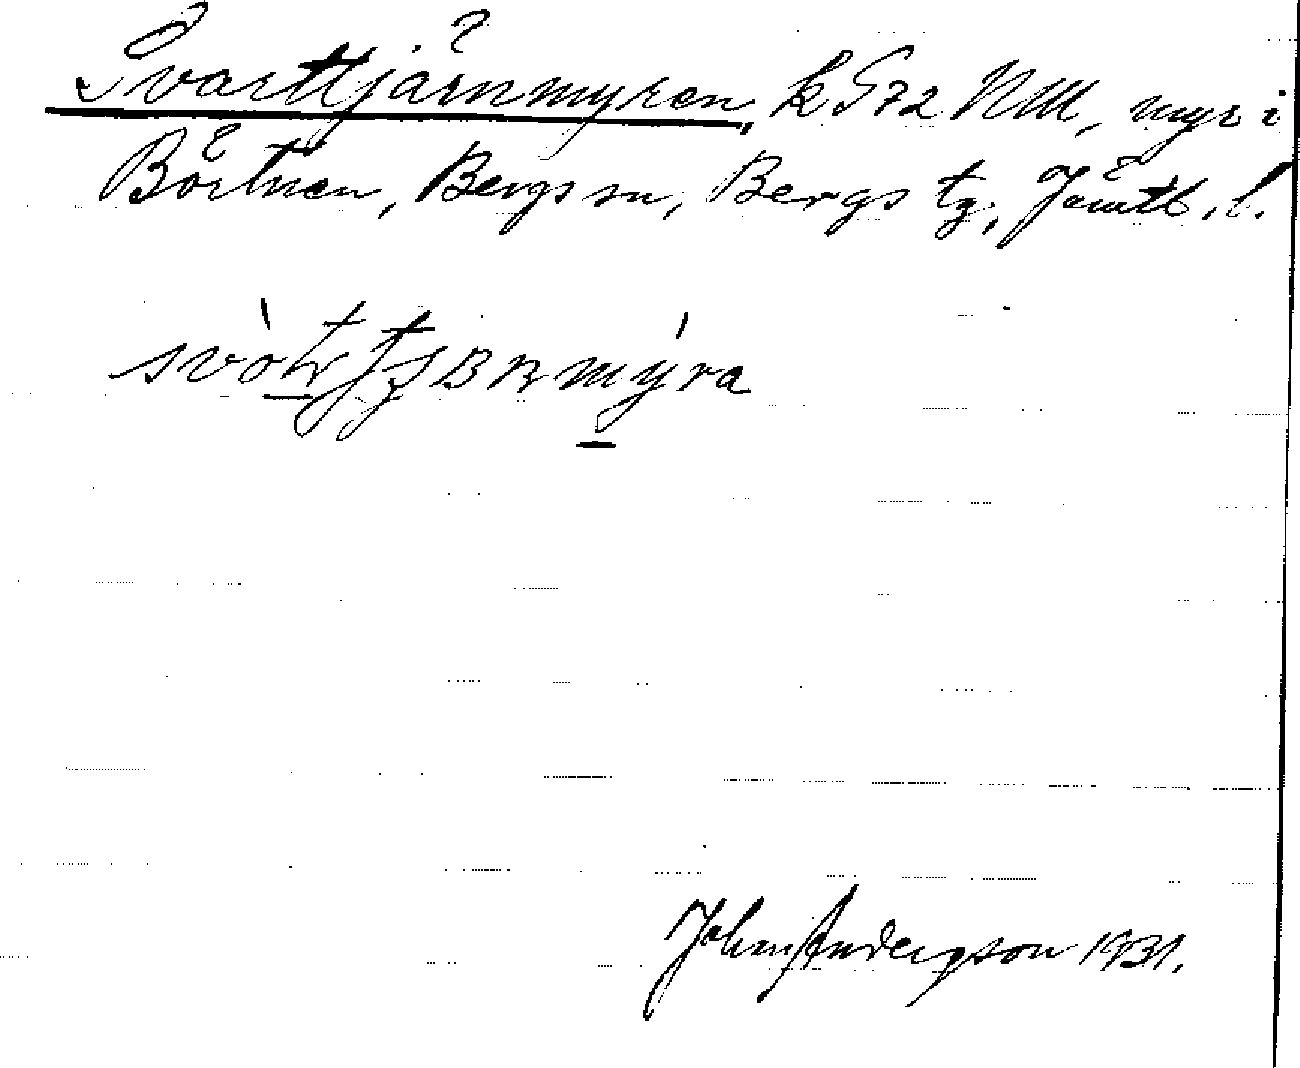 Svarttjärnmyren, k 572 NM, myr i
Börtnen, Bergs sn, Bergs tg, Jämtl. l.
John Andersson 1931.